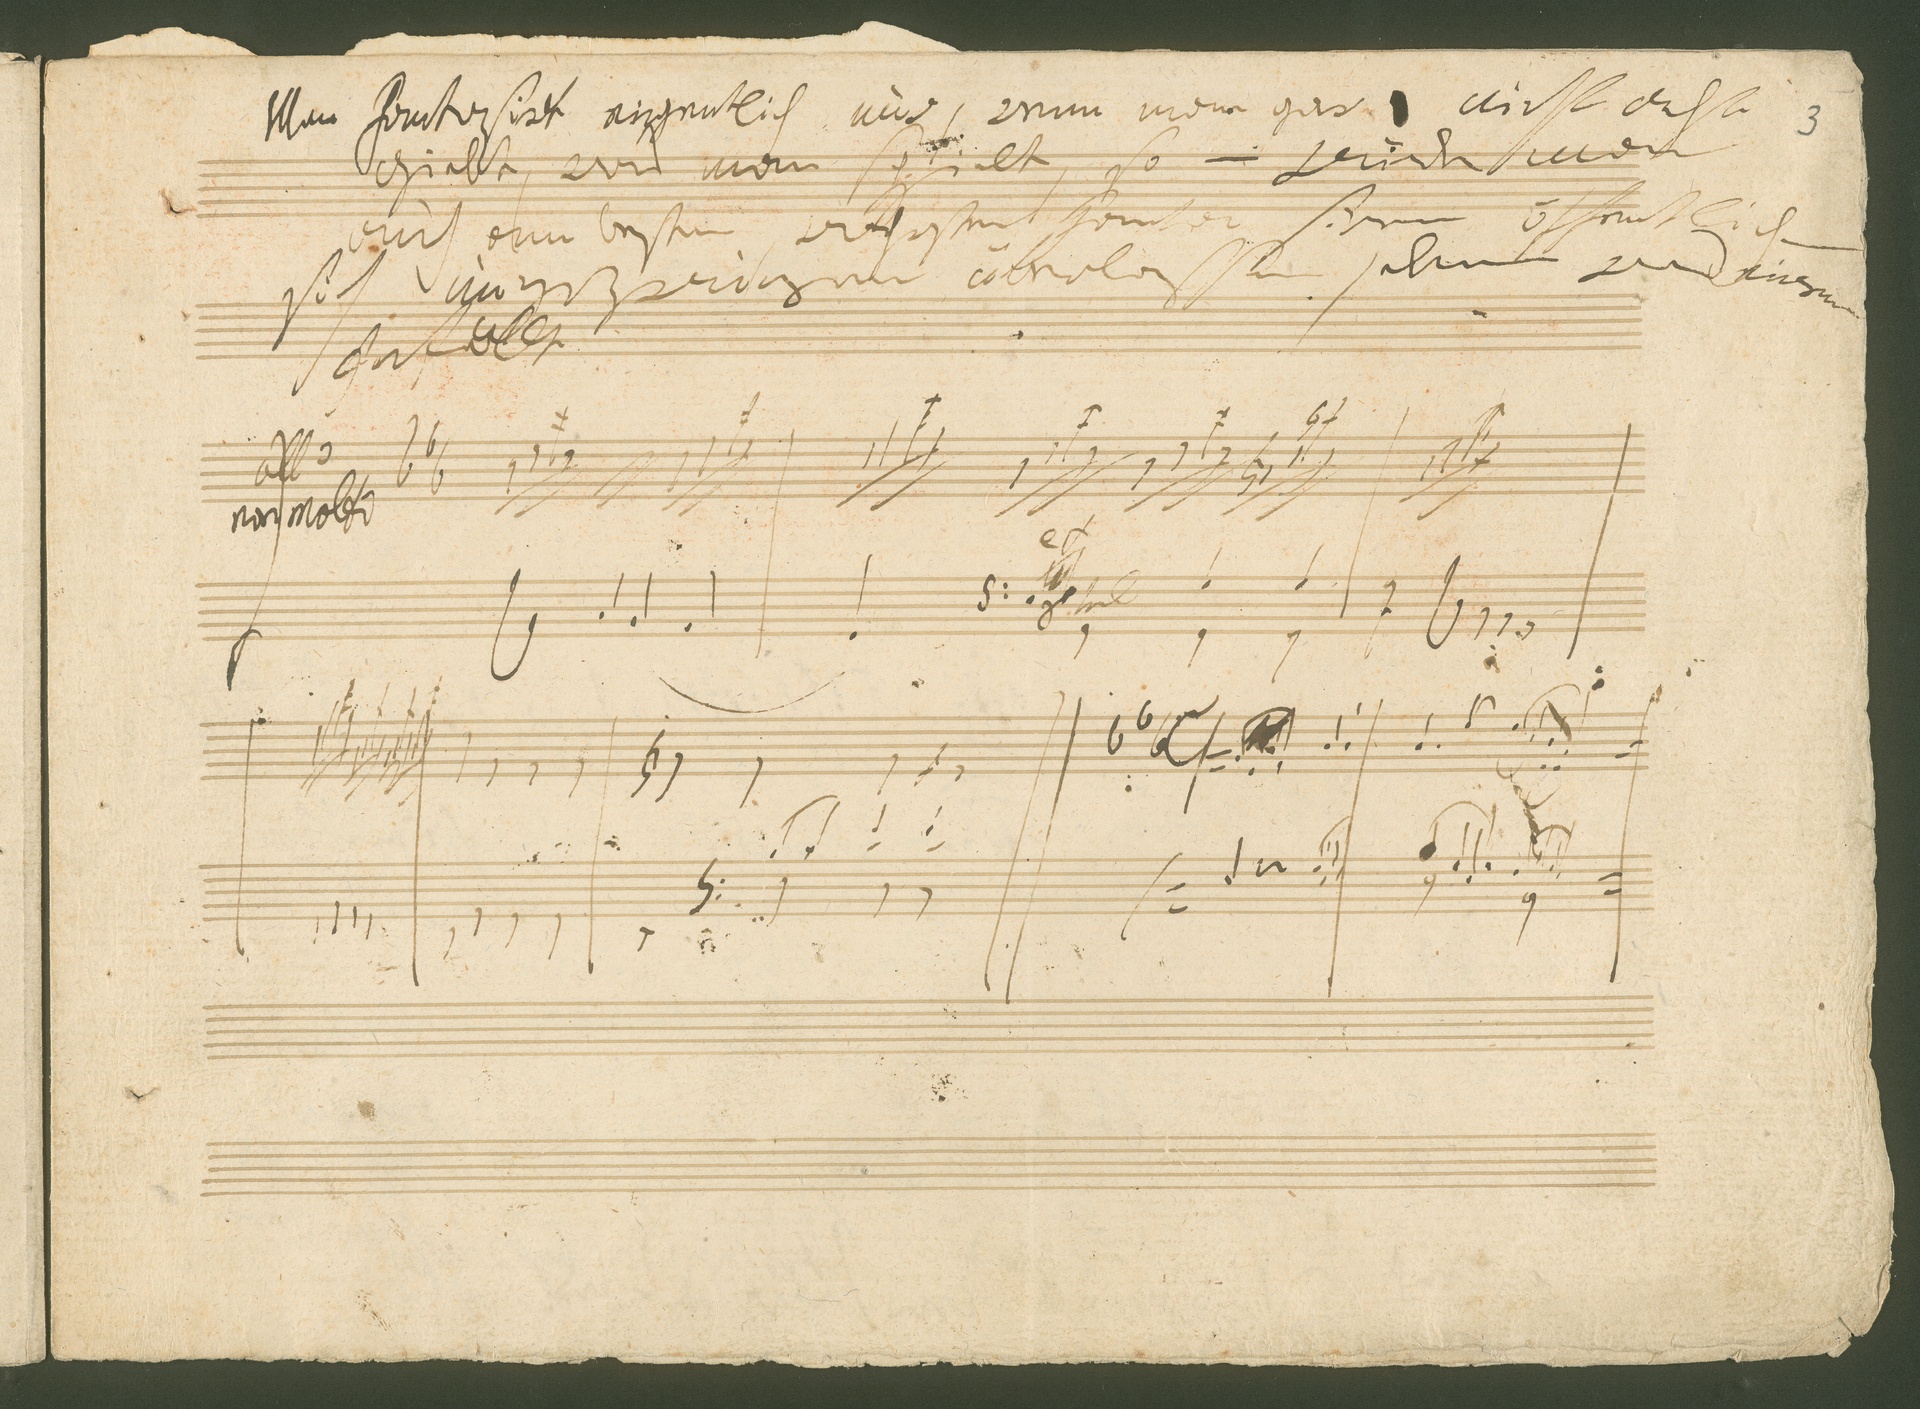 Man Fantasirt eigentlich nur, wenn man gar nicht acht
giebt, was man spielt, so — würde man
auch am besten, wahrsten fantasiren öffentlich
sich ungezwungen überlassen, eben was einem
gefällt
3
all°
non molto